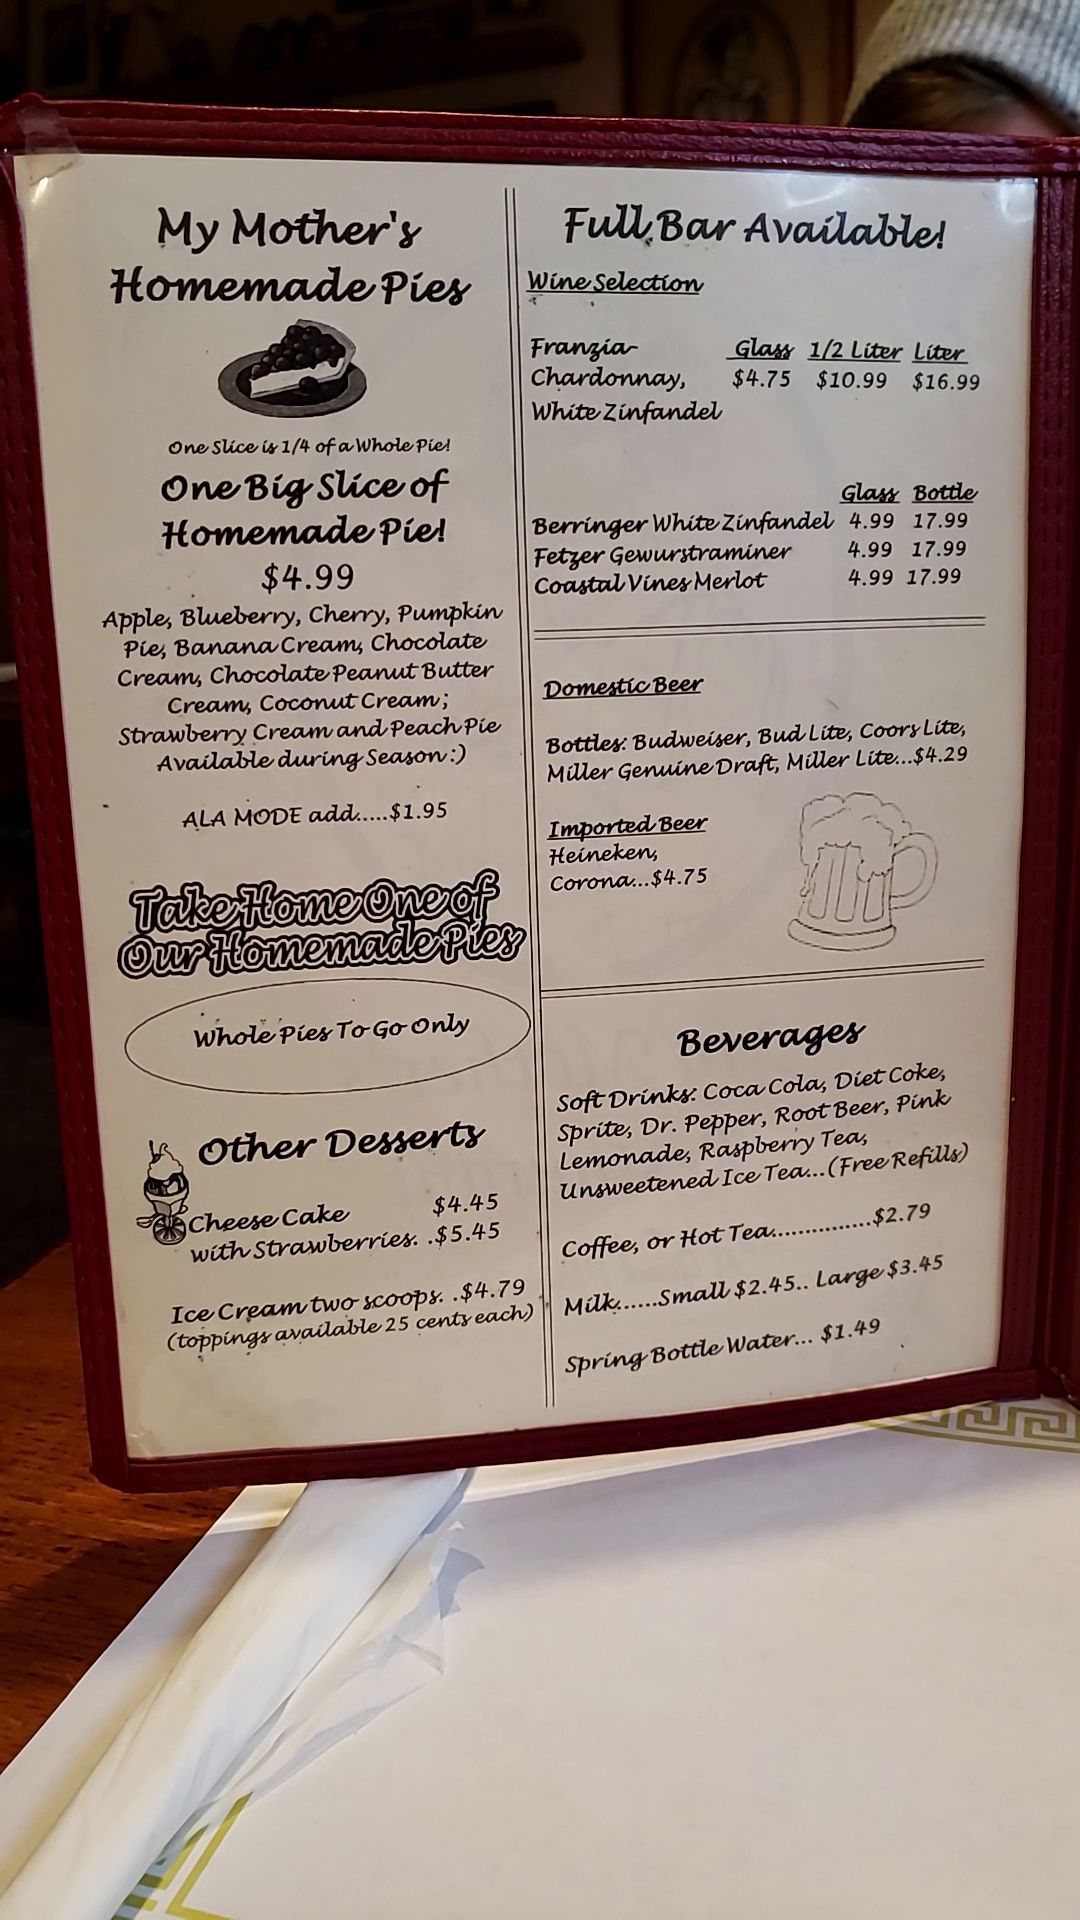 My Mother's
Homemade Pies
One Slice is 1/4 of a Whole Pie!
One Big Slice of
Homemade Pie!
$4.99
Apple, Blueberry, Cherry, Pumpkin
Pie, Banana Cream, Chocolate
Cream, Chocolate Peanut Butter
Cream, Coconut Cream;
Strawberry Cream and Peach Pie
Available during Season :)
ALA MODE add.....$1.95
Take Home One of
Our Homemade Pies
Whole Pies To Go Only
Other Desserts
Cheese Cake $4.45
with Strawberries. .$5.45
Ice Cream two scoops. .$4.79
(toppings available 25 cents each)
Full Bar Available!
Wine Selection
Franzia- Glass 1/2 Liter Liter
Chardonnay, $4.75 $10.99 $16.99
White Zinfandel
Glass Bottle
Berringer White Zinfandel 4.99 17.99
Fetzer Gewurstraminer 4.99 17.99
Coastal Vines Merlot 4.99 17.99
Domestic Beer
Bottles: Budweiser, Bud Lite, Coors Lite,
Miller Genuine Draft, Miller Lite...$4.29
Imported Beer
Heineken,
Corona...$4.75
Beverages
Soft Drinks: Coca Cola, Diet Coke,
Sprite, Dr. Pepper, Root Beer, Pink
Lemonade, Raspberry Tea,
Unsweetened Ice Tea...(Free Refills)
Coffee, or Hot Tea..............$2.79
Milk......Small $2.45.. Large $3.45
Spring Bottle Water... $1.49